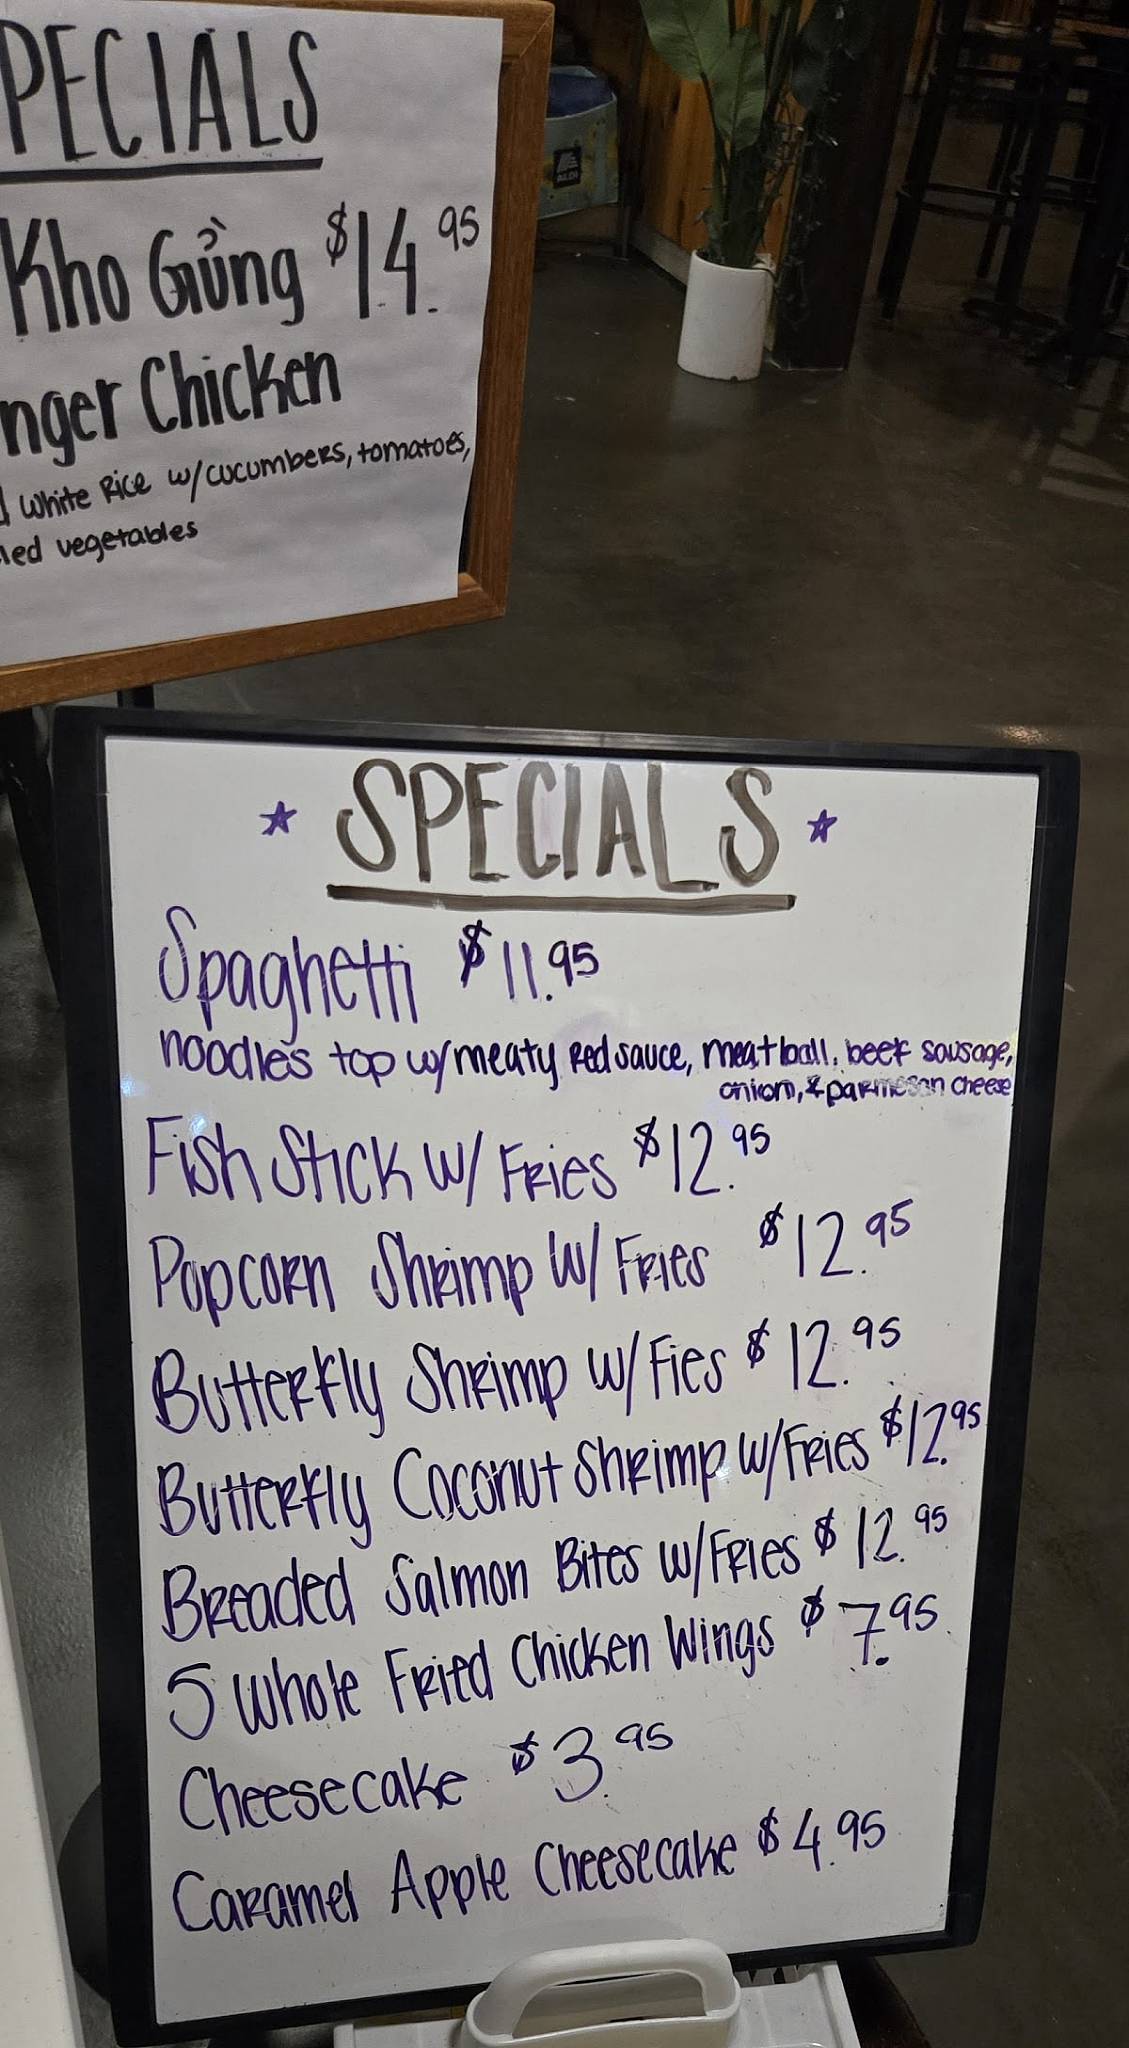 PECIALS
Kho Gừng $14.95
nger Chicken
White Rice w/cucumbers, tomatoes,
led vegetables
ALDI
SPECIALS
Spaghetti $11.95
noodles top w/meaty Red sauce, meatball, beef sausage,
onion, & parmesan cheese
Fish Stick w/ Fries $12.95
Popcorn Shrimp w/ Fries $12.95
Butterfly Shrimp w/ Fies $12.95
Butterfly Coconut Shrimp w/Fries $12.95
Breaded Salmon Bites w/Fries $12.95
5 Whole Fried Chicken Wings $7.95
Cheesecake $3.95
Caramel Apple Cheesecake $4.95